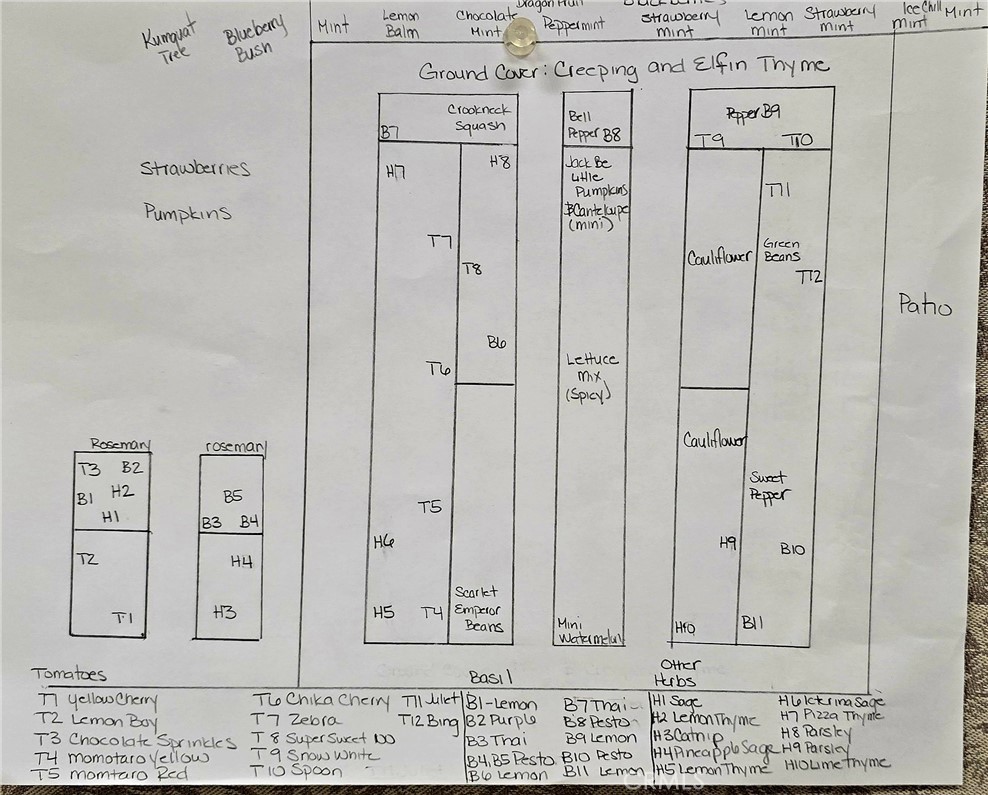 Kumquat Tree
Blueberry Bush
Mint
Lemon Balm
Chocolate Mint
Dragon Fruit
Peppermint
Strawberry mint
Lemon mint
Strawberry mint
Ice Chill mint
Mint
Ground Cover: Creeping and Elfin Thyme
Patio
Strawberries
Pumpkins
Rosemary
T3 B2
B1 H2
H1
T2
T1
rosemary
B5
B3 B4
H4
H3
Crookneck
B7 Squash
H7 H8
T7
T8
B6
T6
T5
H6
H5 T4
Scarlet
Emperor
Beans
Bell
Pepper B8
Jack Be
Little
Pumpkins
& Cantelupe
(mini)
Lettuce
mix
(Spicy)
Mini
Watermelon
Pepper B9
T9 T10
T11
Cauliflower
Green
Beans
T12
Cauliflower
Sweet
Pepper
H9
B10
H10
B11
Tomatoes
T1 yellow Cherry
T2 Lemon Boy
T3 Chocolate Sprinkles
T4 momotaro Yellow
T5 momtaro Red
T6 Chika Cherry
T7 Zebra
T8 Super Sweet 100
T9 Snow White
T10 Spoon
T11 Juliet
T12 Bing
Basil
B1-Lemon
B2 Purple
B3 Thai
B4, B5 Pesto
B6 Lemon
B7 Thai
B8 Pesto
B9 Lemon
B10 Pesto
B11 Lemon
Other
Herbs
H1 Sage
H2 Lemon Thyme
H3 Catnip
H4 Pineapple Sage
H5 Lemon Thyme
H6 Ickrina Sage
H7 Pizza Thyme
H8 Parsley
H9 Parsley
H10 Lime Thyme
CRMLS